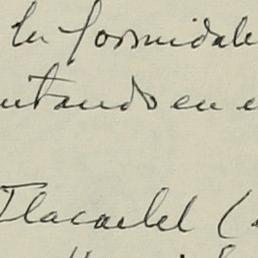 la formidable
utando en e
Tlacaelel (